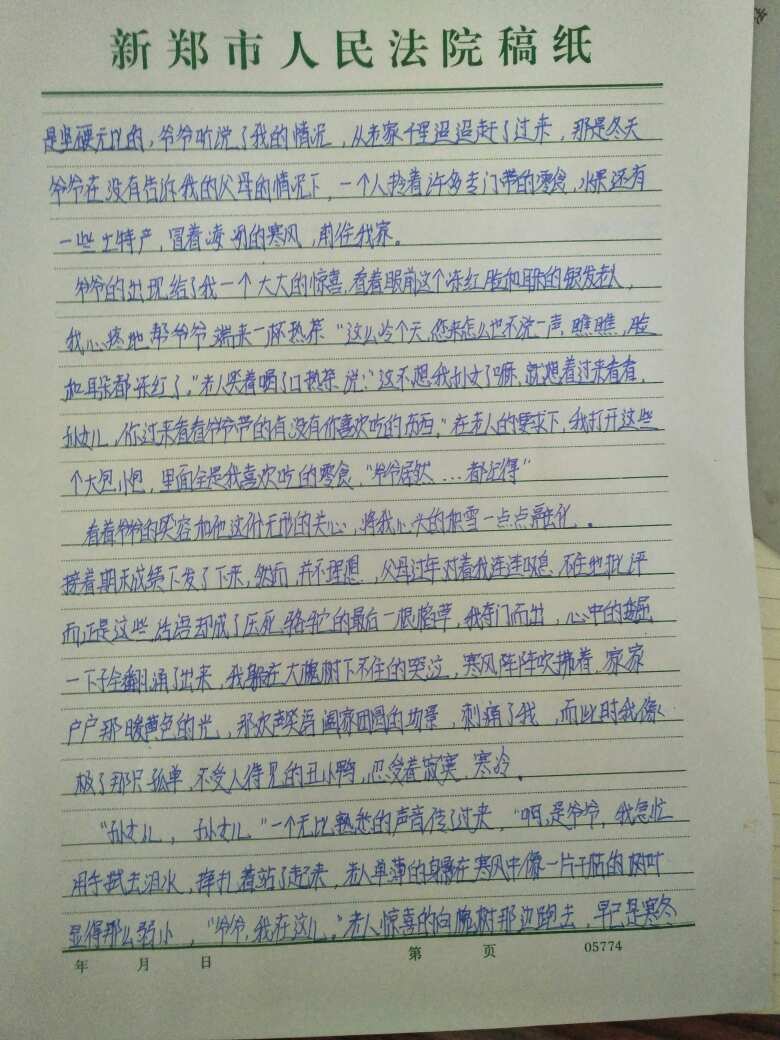 新郑市人民法院稿纸
是坚硬无比的，爷爷听说了我的情况，从老家千里迢迢赶了过来，那是冬天
爷爷在没有告诉我的父母的情况下，一个人拎着许多专门带的零食，水果还有
一些土特产，冒着凌冽的寒风，前往我家。
爷爷的出现给了我一个大大的惊喜，看着眼前这个冻红脸和耳朵的银发老人，
我心疼地帮爷爷端来一杯热茶“这么冷个天，您来怎么也不说一声，瞧瞧，脸
和耳朵都冻红了。”老人笑着喝了口热茶说：“这不想我孙女了嘛，就想着过来看看，
孙女儿，你过来看看爷爷带的有没有你喜欢吃的东西。”在老人的要求下，我打开这些
个大包小包，里面全是我喜欢吃的零食，“爷爷居然…都记得”
看着爷爷的笑容和他这份无形的关心，将我心头的积雪一点点融化。
接着期末成绩下发了下来，然而，并不理想，父母过年对着我连连叹息，不住地批评
而正是这些话语却成了压死骆驼的最后一根稻草，我夺门而出，心中的委屈
一下子全翻涌了出来，我躲在大槐树下不住的哭泣，寒风阵阵吹拂着，家家
户户那暖黄色的光，那欢声笑语阖家团圆的场景，刺痛了我，而此时我像
极了那只孤单，不受人待见的丑小鸭，忍受着寂寞，寒冷。
“孙女儿，孙女儿”一个无比熟悉的声音传了过来，“啊，是爷爷，我急忙
用手拭去泪水，挣扎着站了起来，老人单薄的身影在寒风中像一片干枯的树叶
显得那么弱小，“爷爷，我在这儿。”老人惊喜的向槐树那边跑去，早已是寒冬
年 月 日 第 页 05774